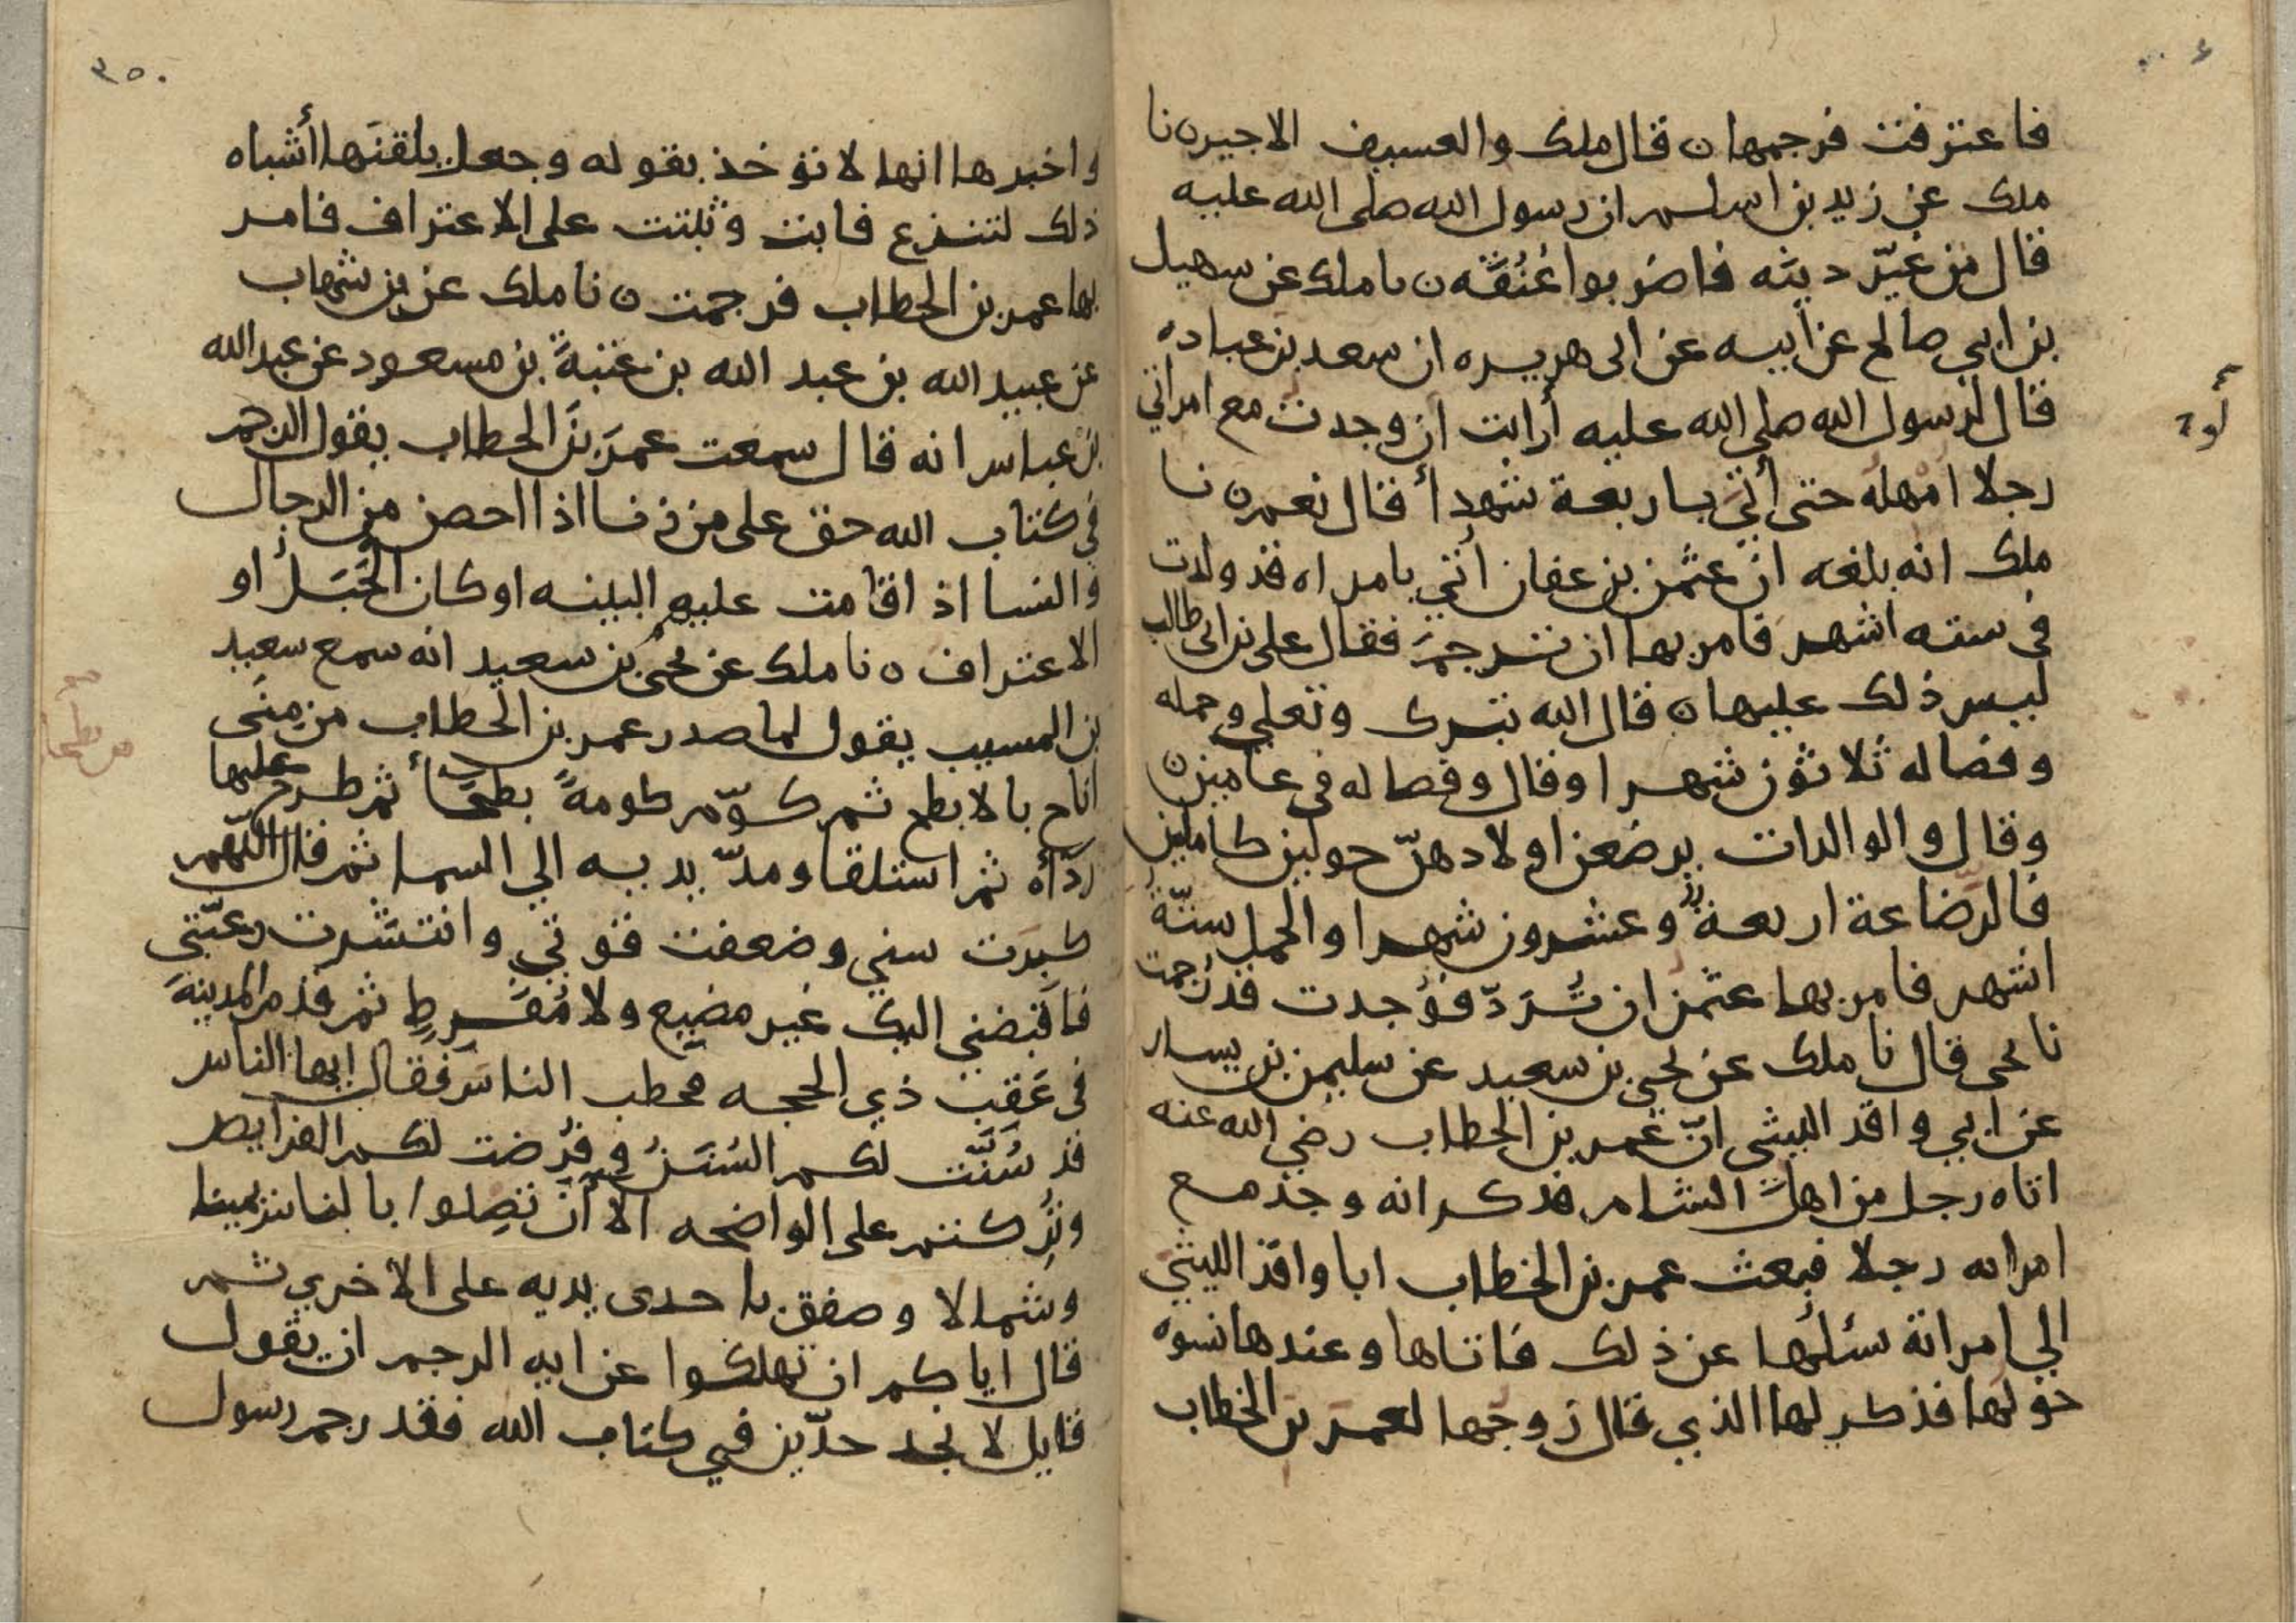 فاعترفت فرجمها ن قال ملك والعسيف الاجير ن نا
ملك عن زيد بن اسلم ان رسول الله صلى الله عليه
قال من غيّر دينَه فاضربوا عُنُقَه ن نا ملك عن سهيل
بن ابي صالح عن ابيه عن ابى هريره ان سعد بن عباده
قال لرسول الله صلى الله عليه أرايت ان وجدت مع امراتي
رجلا امهله حتى أتي باربعة شهدأ قال نعم ن نا
ملك انه بلغه ان عثمن بن عفان أتي بامراه قد ولدت
في سته اشهر فامر بها ان ترجمَ فقال على بن ابى طالب
ليس ذلك عليها ن قال الله تبرك وتعلي وحمله
وفصاله ثلاثون شهرا وقال وفصاله في عامين ن
وقال والوالدات يرضعن اولادهنّ حولين كاملين
فالرضاعة اربعة وعشرون شهرا والحمل ستّة
اشهر فامر بها عثمن ان تُرَدّ فوُجدت قد رُجمت
نا يحيى قال نا ملك عن يحيى بن سعيد عن سليمن بن يسار
عن ابي واقد الليثي انّ عمر بن الخطاب رضي الله عنه
اتاه رجل من اهل الشام فذكر انه وجد مع
امراته رجلا فبعث عمر بن الخطاب ابا واقد الليثي
الي امراتة سئلُها عن ذلك فاتاها وعندها نسوه
حولها فذكر لها الذي قال زوجها لعمرَ بن الخطاب
٣٥٠
واخبرها انها لا تؤخذ بقوله وجعل يلقنَها أشباه
ذلك لتنزع فابت وثبتت على الاعتراف فامر
بها عمر بن الخطاب فرجمت ن نا ملك عن بن شهاب
عن عبيد الله بن عبد الله بن عتبةَ بن مسعود عن عبد الله
بن عباس انه قال سمعت عمرَ بنَ الخطاب يقول الرجم
في كتاب الله حق على من زنا اذا احصن من الرجال
والنسا اذا قامت عليهم البينه او كان الحَبَل أو
الاعتراف ن نا ملك عن يحيى بن سعيد انه سمع سعيد
بن المسيب يقول لما صدر عمر بن الخطاب من مِنَى
اناخ بالابطح ثم كوّم كومةً بطحأ ثم طرح عليها
ردّأه ثم استلقا ومدّ يديه الي السما ثم قال اللّهم
كبرَت سني وضعفت قوتي وانتشَرت رعيّتي
فاقبضني اليك غير مضيع ولا مُفَرِطٍ ثم قدم المدينةَ
في عَقِب ذي الحجه فخطب الناسَ فقال ايها الناس
قد سُنّت لكم السُنَنُ وفُرضت لكم الفرايض
وتُرِكتم على الواضحه الا أن تضِلوا بالناس يمينا
وشمالا وصفق باحدى يديه على الاخري ثم
قال اياكم ان تهلكوا عن ايه الرجم ان يقول
قايل لا نجد حدّين في كتاب الله فقد رجم رسول